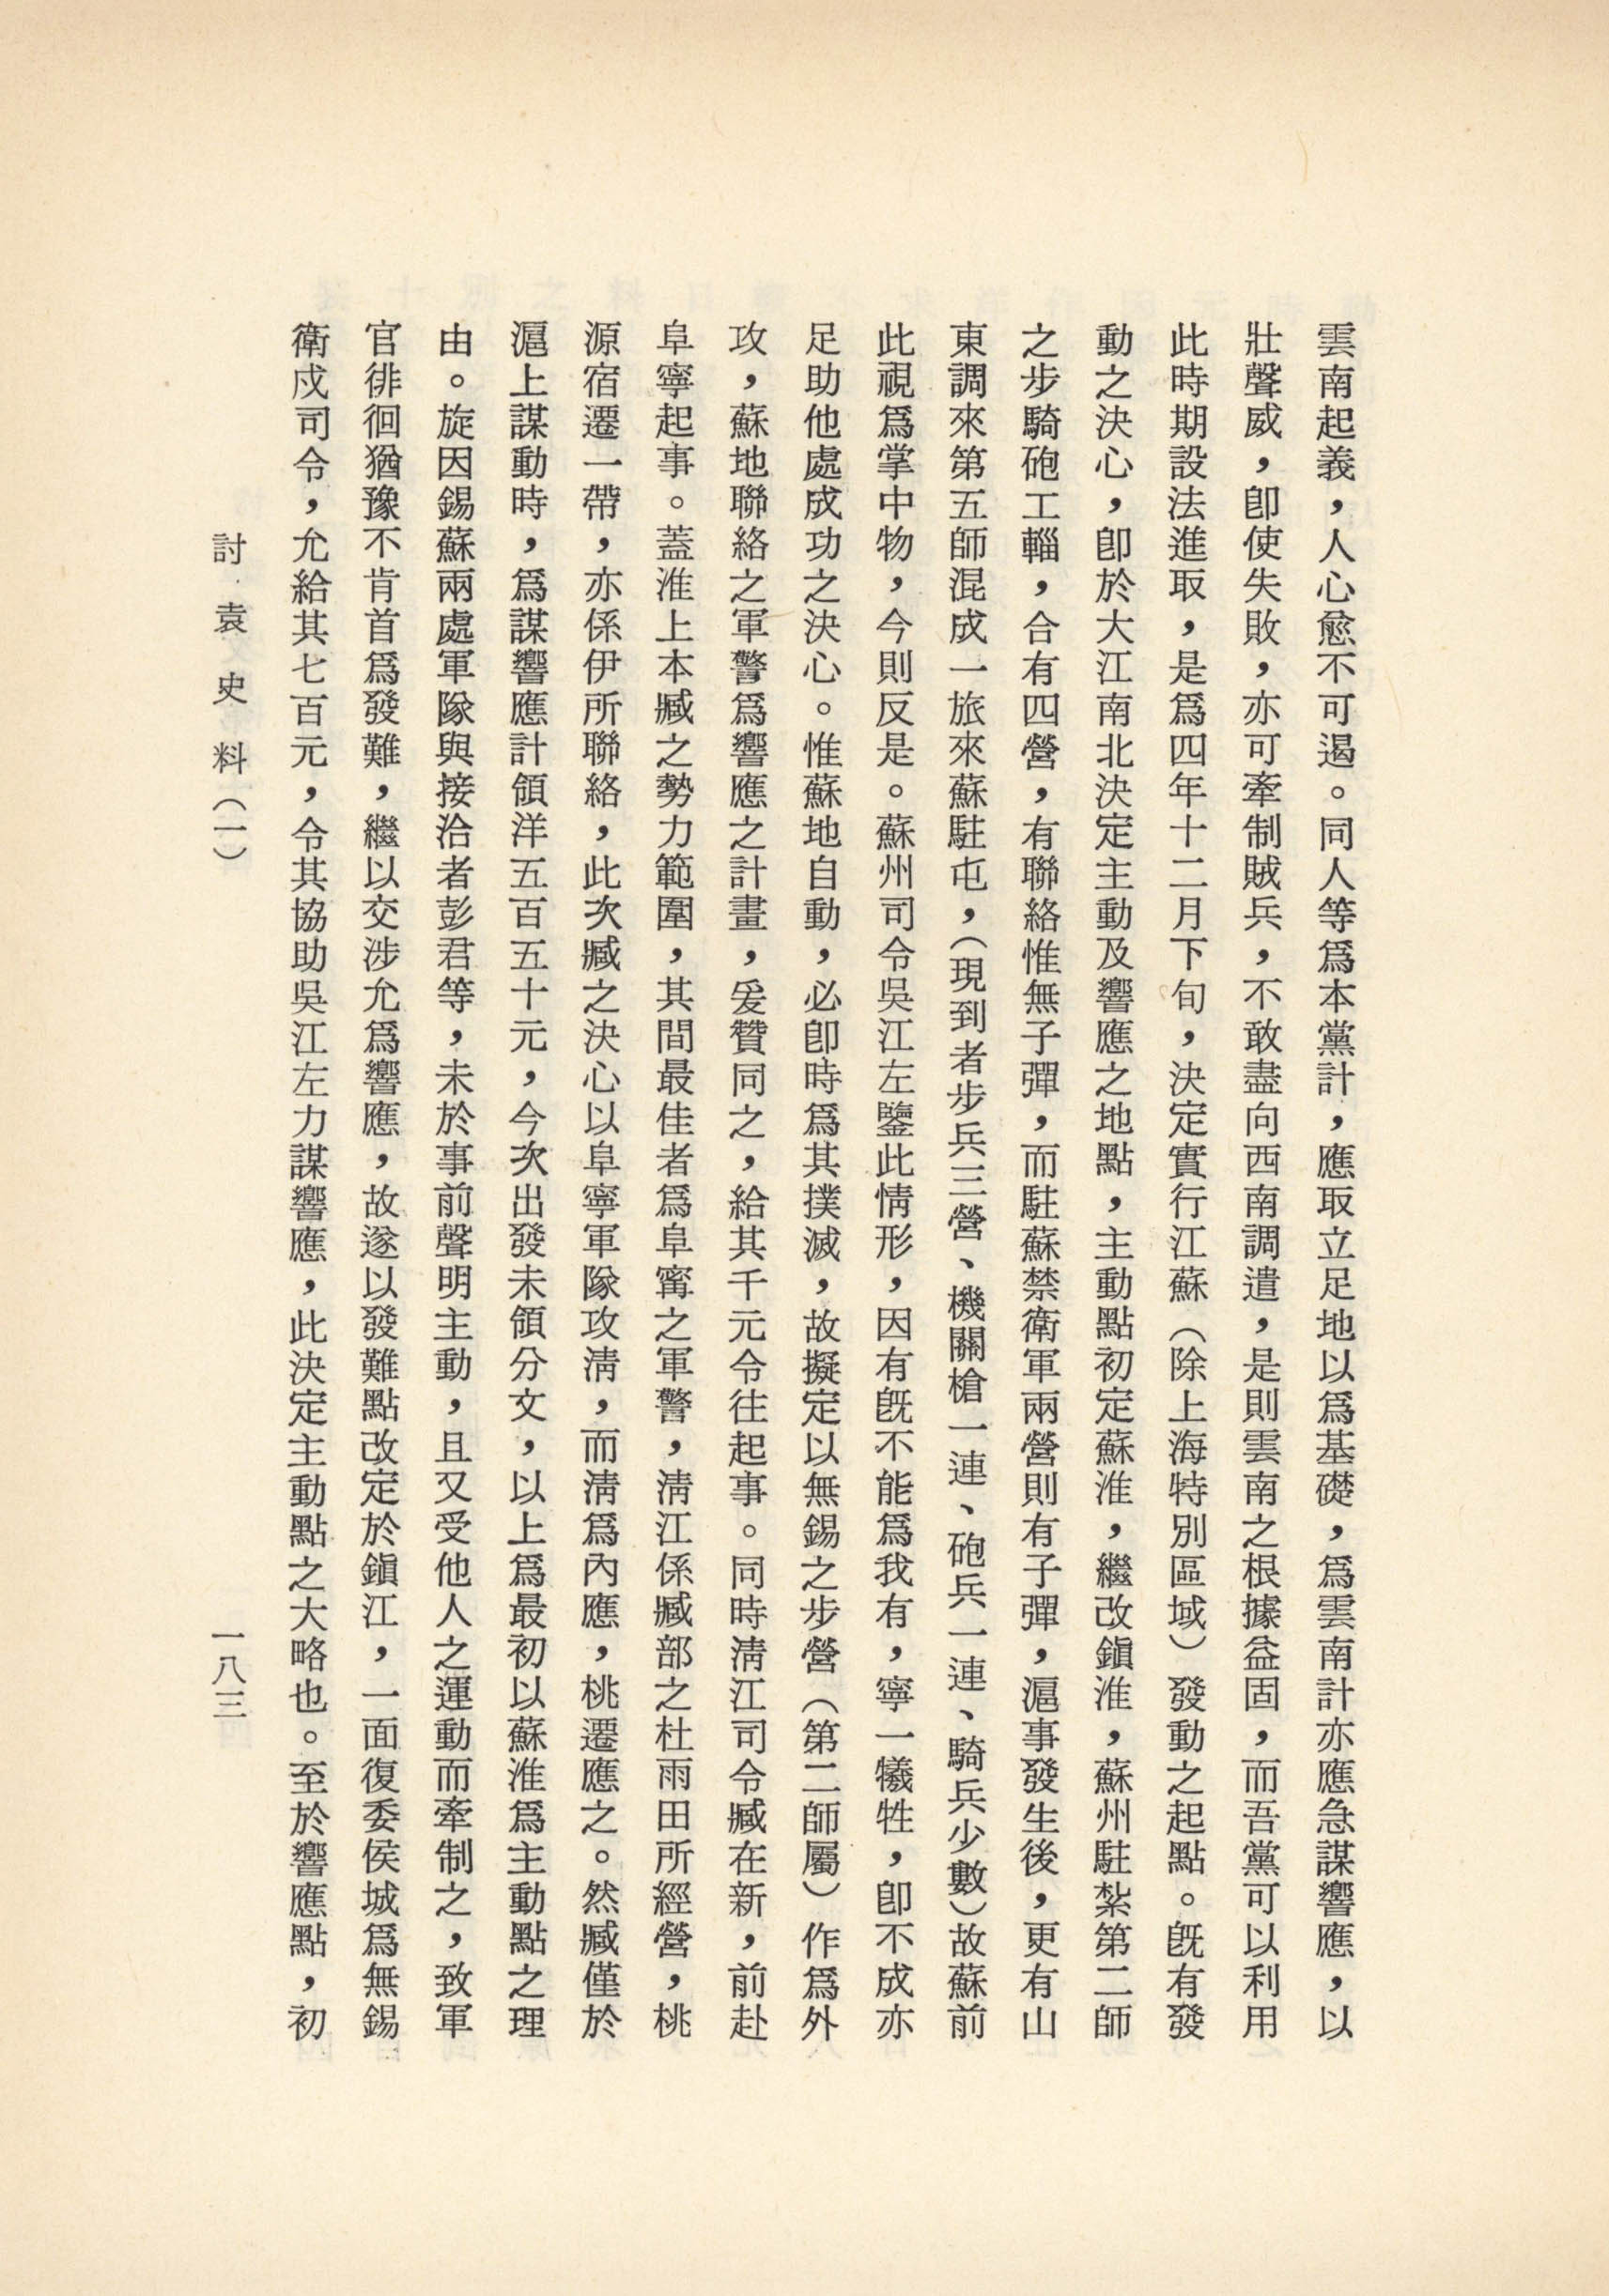 雲南起義，人心愈不可遏。同人等爲本黨計，應取立足地以爲基礎，爲雲南計亦應急謀響應，以
壯聲威，卽使失敗，亦可牽制賊兵，不敢盡向西南調遣，是則雲南之根據益固，而吾黨可以利用
此時期設法進取，是爲四年十二月下旬，決定實行江蘇（除上海特別區域）發動之起點。旣有發
動之決心，卽於大江南北決定主動及響應之地點，主動點初定蘇淮，繼改鎭淮，蘇州駐紮第二師
之步騎砲工輜，合有四營，有聯絡惟無子彈，而駐蘇禁衛軍兩營則有子彈，滬事發生後，更有山
東調來第五師混成一旅來蘇駐屯，（現到者步兵三營、機關槍一連、砲兵一連、騎兵少數）故蘇前
此視爲掌中物，今則反是。蘇州司令吳江左鑒此情形，因有旣不能爲我有，寧一犧牲，卽不成亦
足助他處成功之決心。惟蘇地自動，必卽時爲其撲滅，故擬定以無錫之步營（第二師屬）作爲外
攻，蘇地聯絡之軍警爲響應之計畫，爰贊同之，給其千元令往起事。同時淸江司令臧在新，前赴
阜寧起事。蓋淮上本臧之勢力範圍，其間最佳者爲阜甯之軍警，淸江係臧部之杜雨田所經營，桃
源宿遷一帶，亦係伊所聯絡，此次臧之決心以阜寧軍隊攻淸，而淸爲內應，桃遷應之。然臧僅於
滬上謀動時，爲謀響應計領洋五百五十元，今次出發未領分文，以上爲最初以蘇淮爲主動點之理
由。旋因錫蘇兩處軍隊與接洽者彭君等，未於事前聲明主動，且又受他人之運動而牽制之，致軍
官徘徊猶豫不肯首爲發難，繼以交涉允爲響應，故遂以發難點改定於鎭江，一面復委侯城爲無錫
衛戍司令，允給其七百元，令其協助吳江左力謀響應，此決定主動點之大略也。至於響應點，初
討袁史料（一）
一八三